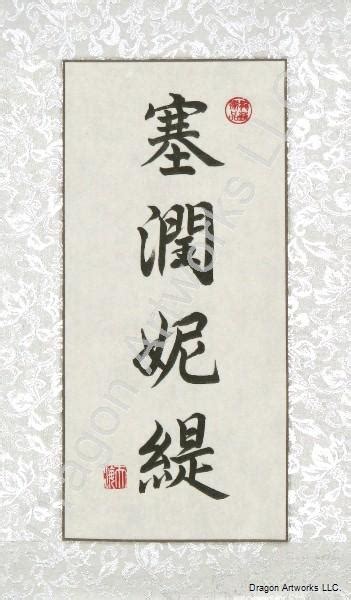 塞
潤
妮
緹
Dragon Artworks LLC
Dragon Artworks LLC.